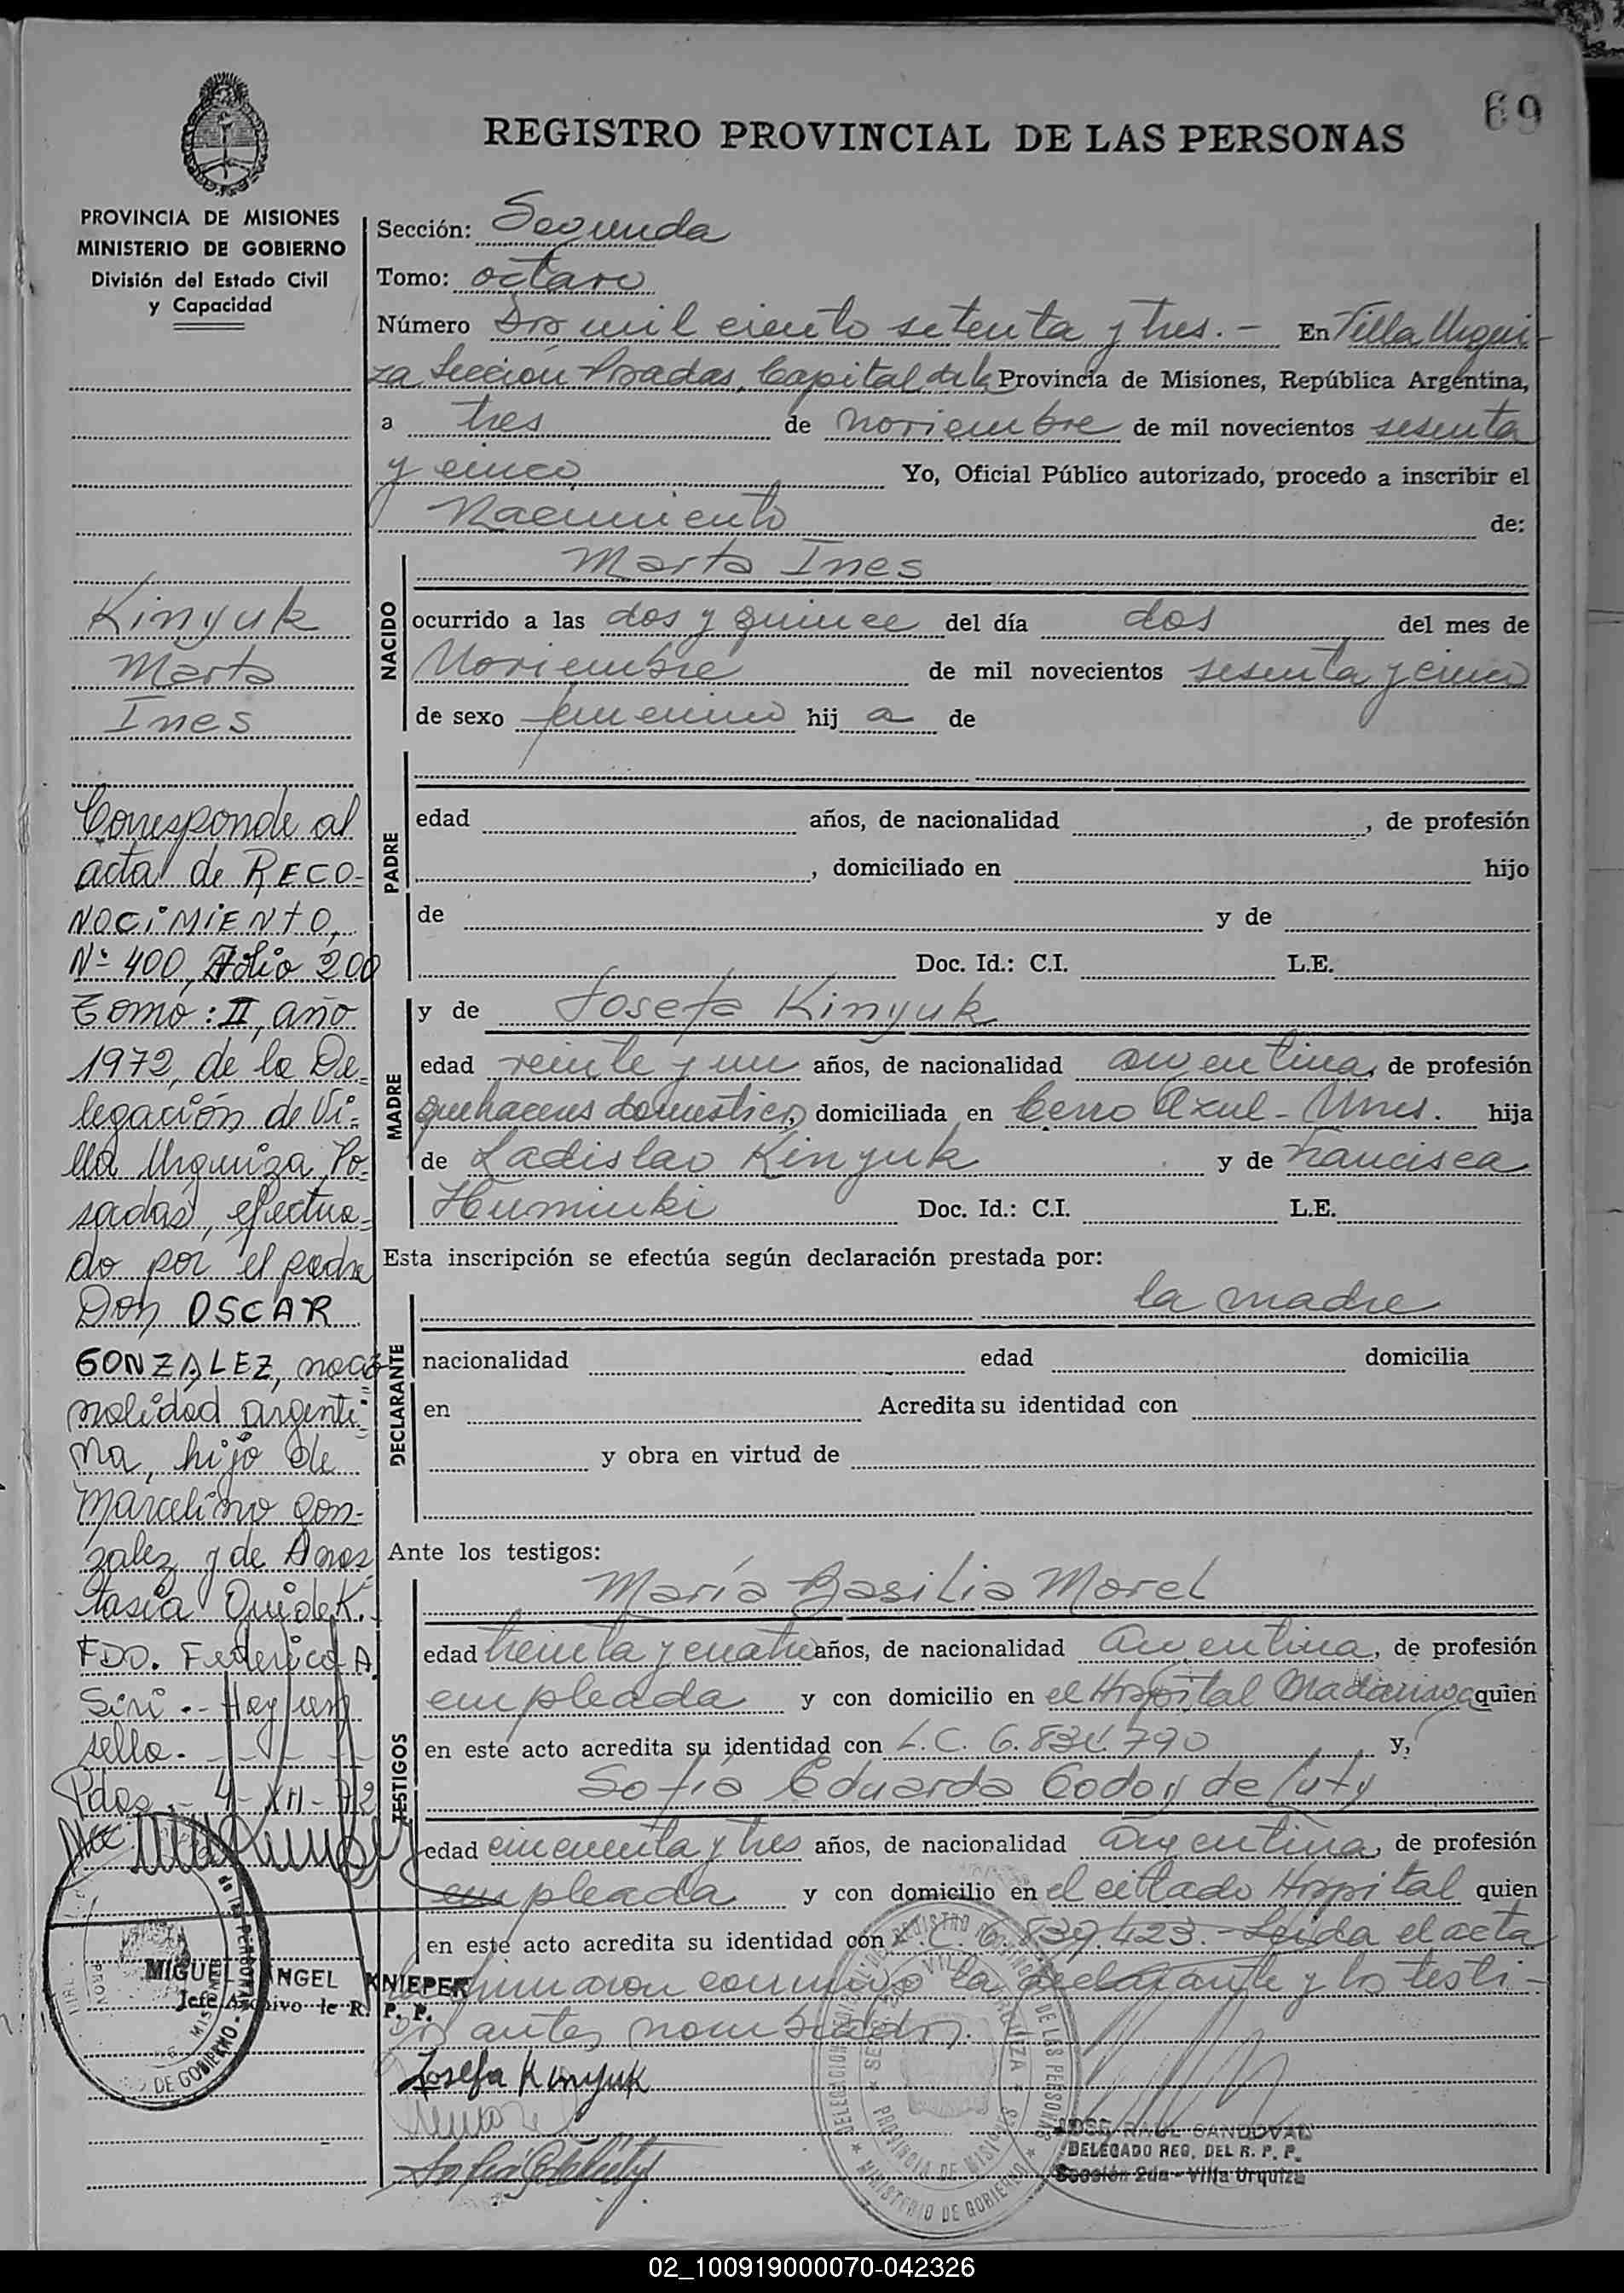 69
REGISTRO PROVINCIAL DE LAS PERSONAS
PROVINCIA DE MISIONES
MINISTERIO DE GOBIERNO
División del Estado Civil
y Capacidad
Kinyuk
Marta
Ines
Corresponde al
acta de RECO-
NOCIMIENTO,
Nº 400, Folio 200
Tomo: II, año
1972, de la De-
legación de Vi-
lla Urquiza, Po-
sadas, efectua-
do por el padre
Don OSCAR
GONZALEZ, nacio-
nalidad argenti-
na, hijo de
Marcelino Gon-
zalez y de Anas-
tasia Quidek.
FDO. Federico A.
Siri.- Hay un
sello.-
Pdas.- 4-XII-72
MIGUEL ANGEL KNIEPER
Jefe Archivo de R. P. P.
Sección: Segunda
Tomo: octavo
Número Dos mil ciento setenta y tres.- En Villa Urqui-
za Sección Posadas, Capital de la Provincia de Misiones, República Argentina,
a tres de noviembre de mil novecientos sesenta
y cinco Yo, Oficial Público autorizado, procedo a inscribir el
Nacimiento de:
NACIDO
Marta Ines
ocurrido a las dos y quince del día dos del mes de
Noviembre de mil novecientos sesenta y cinco
de sexo femenino hija de
PADRE
edad años, de nacionalidad , de profesión
, domiciliado en hijo
de y de
Doc. Id.: C.I. L.E.
MADRE
y de Josefa Kinyuk
edad veinte y un años, de nacionalidad argentina, de profesión
quehaceres domesticos, domiciliada en Cerro Azul - Mnes. hija
de Ladislao Kinyuk y de Francisca
Huminki Doc. Id.: C.I. L.E.
Esta inscripción se efectúa según declaración prestada por:
DECLARANTE
la madre
nacionalidad edad domicilia
en Acredita su identidad con
y obra en virtud de
Ante los testigos:
TESTIGOS
María Basilia Morel
edad treinta y cuatro años, de nacionalidad Argentina, de profesión
empleada y con domicilio en el Hospital Madariaga quien
en este acto acredita su identidad con L.C. y,
Sofia Eduarda Godoy de
edad cincuenta y tres años, de nacionalidad argentina, de profesión
empleada y con domicilio en el citado Hospital quien
en este acto acredita su identidad con L.C. 6.839.423.- Leida el acta
firmaron conmigo la declarante y los testi-
gos antes nombrados.
Josefa Kinyuk
JOSE RAUL SANDOVAL
DELEGADO REG. DEL R. P. P.
Sección 2da - Villa Urquiza
02_100919000070-042326